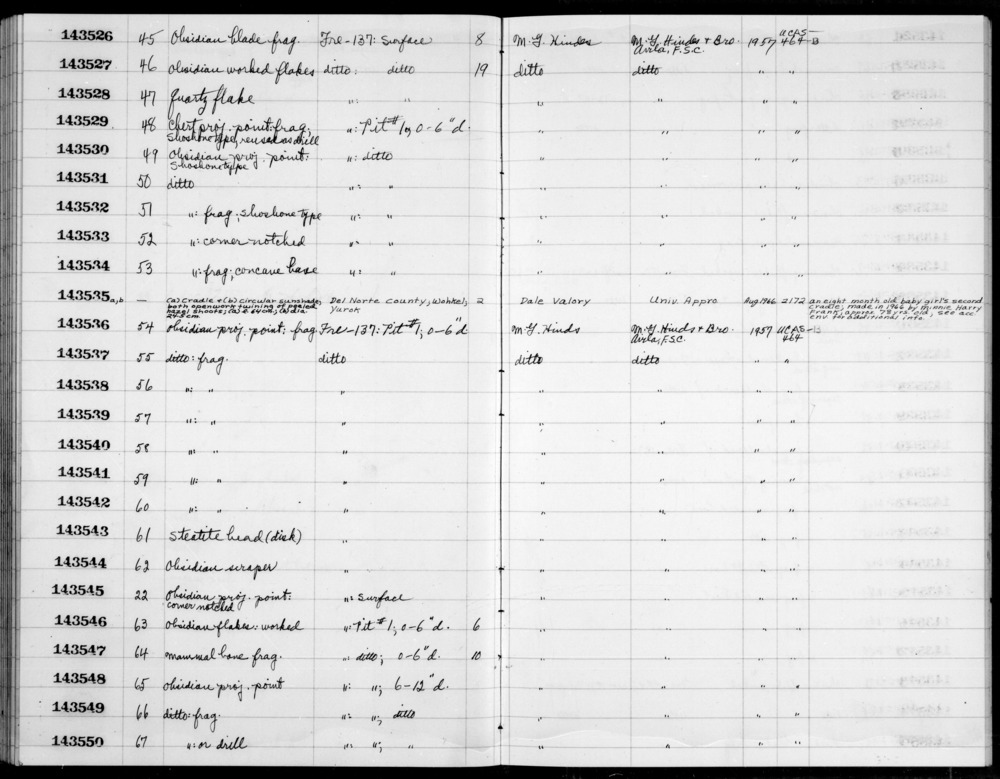 143526 45 Obsidian blade frag. Fre-137: Surface 8 M.G. Hindes M.G. Hindes & Bro. Avila, F.S.C. 1957 UCAS-464-B
143527 46 Obsidian worked flakes ditto: ditto 19 ditto ditto " "
143528 47 Quartz flake ": " " " " "
143529 48 Chert proj. point frag; Shoshone type, reused as drill ": Pit #1; 0-6"d. " " " "
143530 49 Obsidian proj. point: Shoshone type ": ditto " " " "
143531 50 ditto ": " " " " "
143532 51 ": frag; shoshone type ": " " " " "
143533 52 ": corner notched ": " " " " "
143534 53 ": frag; concave base ": " " " " "
143535a,b — (a) Cradle & (b) circular sunshade, both openwork twining of peeled hazel shoots; (a) l. 64cm; (b) dia. 24.5cm Del Norte County; Wohkel; Yurok 2 Dale Valory Univ. Appro Aug 1966 2172 an eight month old baby girl's second cradle; made in 1966 by Minnie Harry Frank, approx. 78 yrs. old; see acc env for additional info.
143536 54 obsidian proj. point, frag. Fre-137: Pit #1; 0-6"d M.G. Hinds M.G. Hinds & Bro. Avila, F.S.C. 1957 UCAS-464-B
143537 55 ditto: frag. ditto ditto ditto " "
143538 56 ": " " " " " "
143539 57 ": " " " " " "
143540 58 ": " " " " " "
143541 59 ": " " " " " "
143542 60 ": " " " " " "
143543 61 Steatite bead (disk) " " " " "
143544 62 Obsidian scraper " " " " "
143545 22 Obsidian proj. point: corner notched ": Surface " " " "
143546 63 Obsidian flakes: worked ": Pit #1; 0-6"d. 6 " " " "
143547 64 mammal bone frag. " ditto; 0-6"d. 10 " " " "
143548 65 obsidian proj. point ": "; 6-12"d. " " " "
143549 66 ditto: frag. ": "; ditto " " " "
143550 67 ": or drill ": "; " " " " "